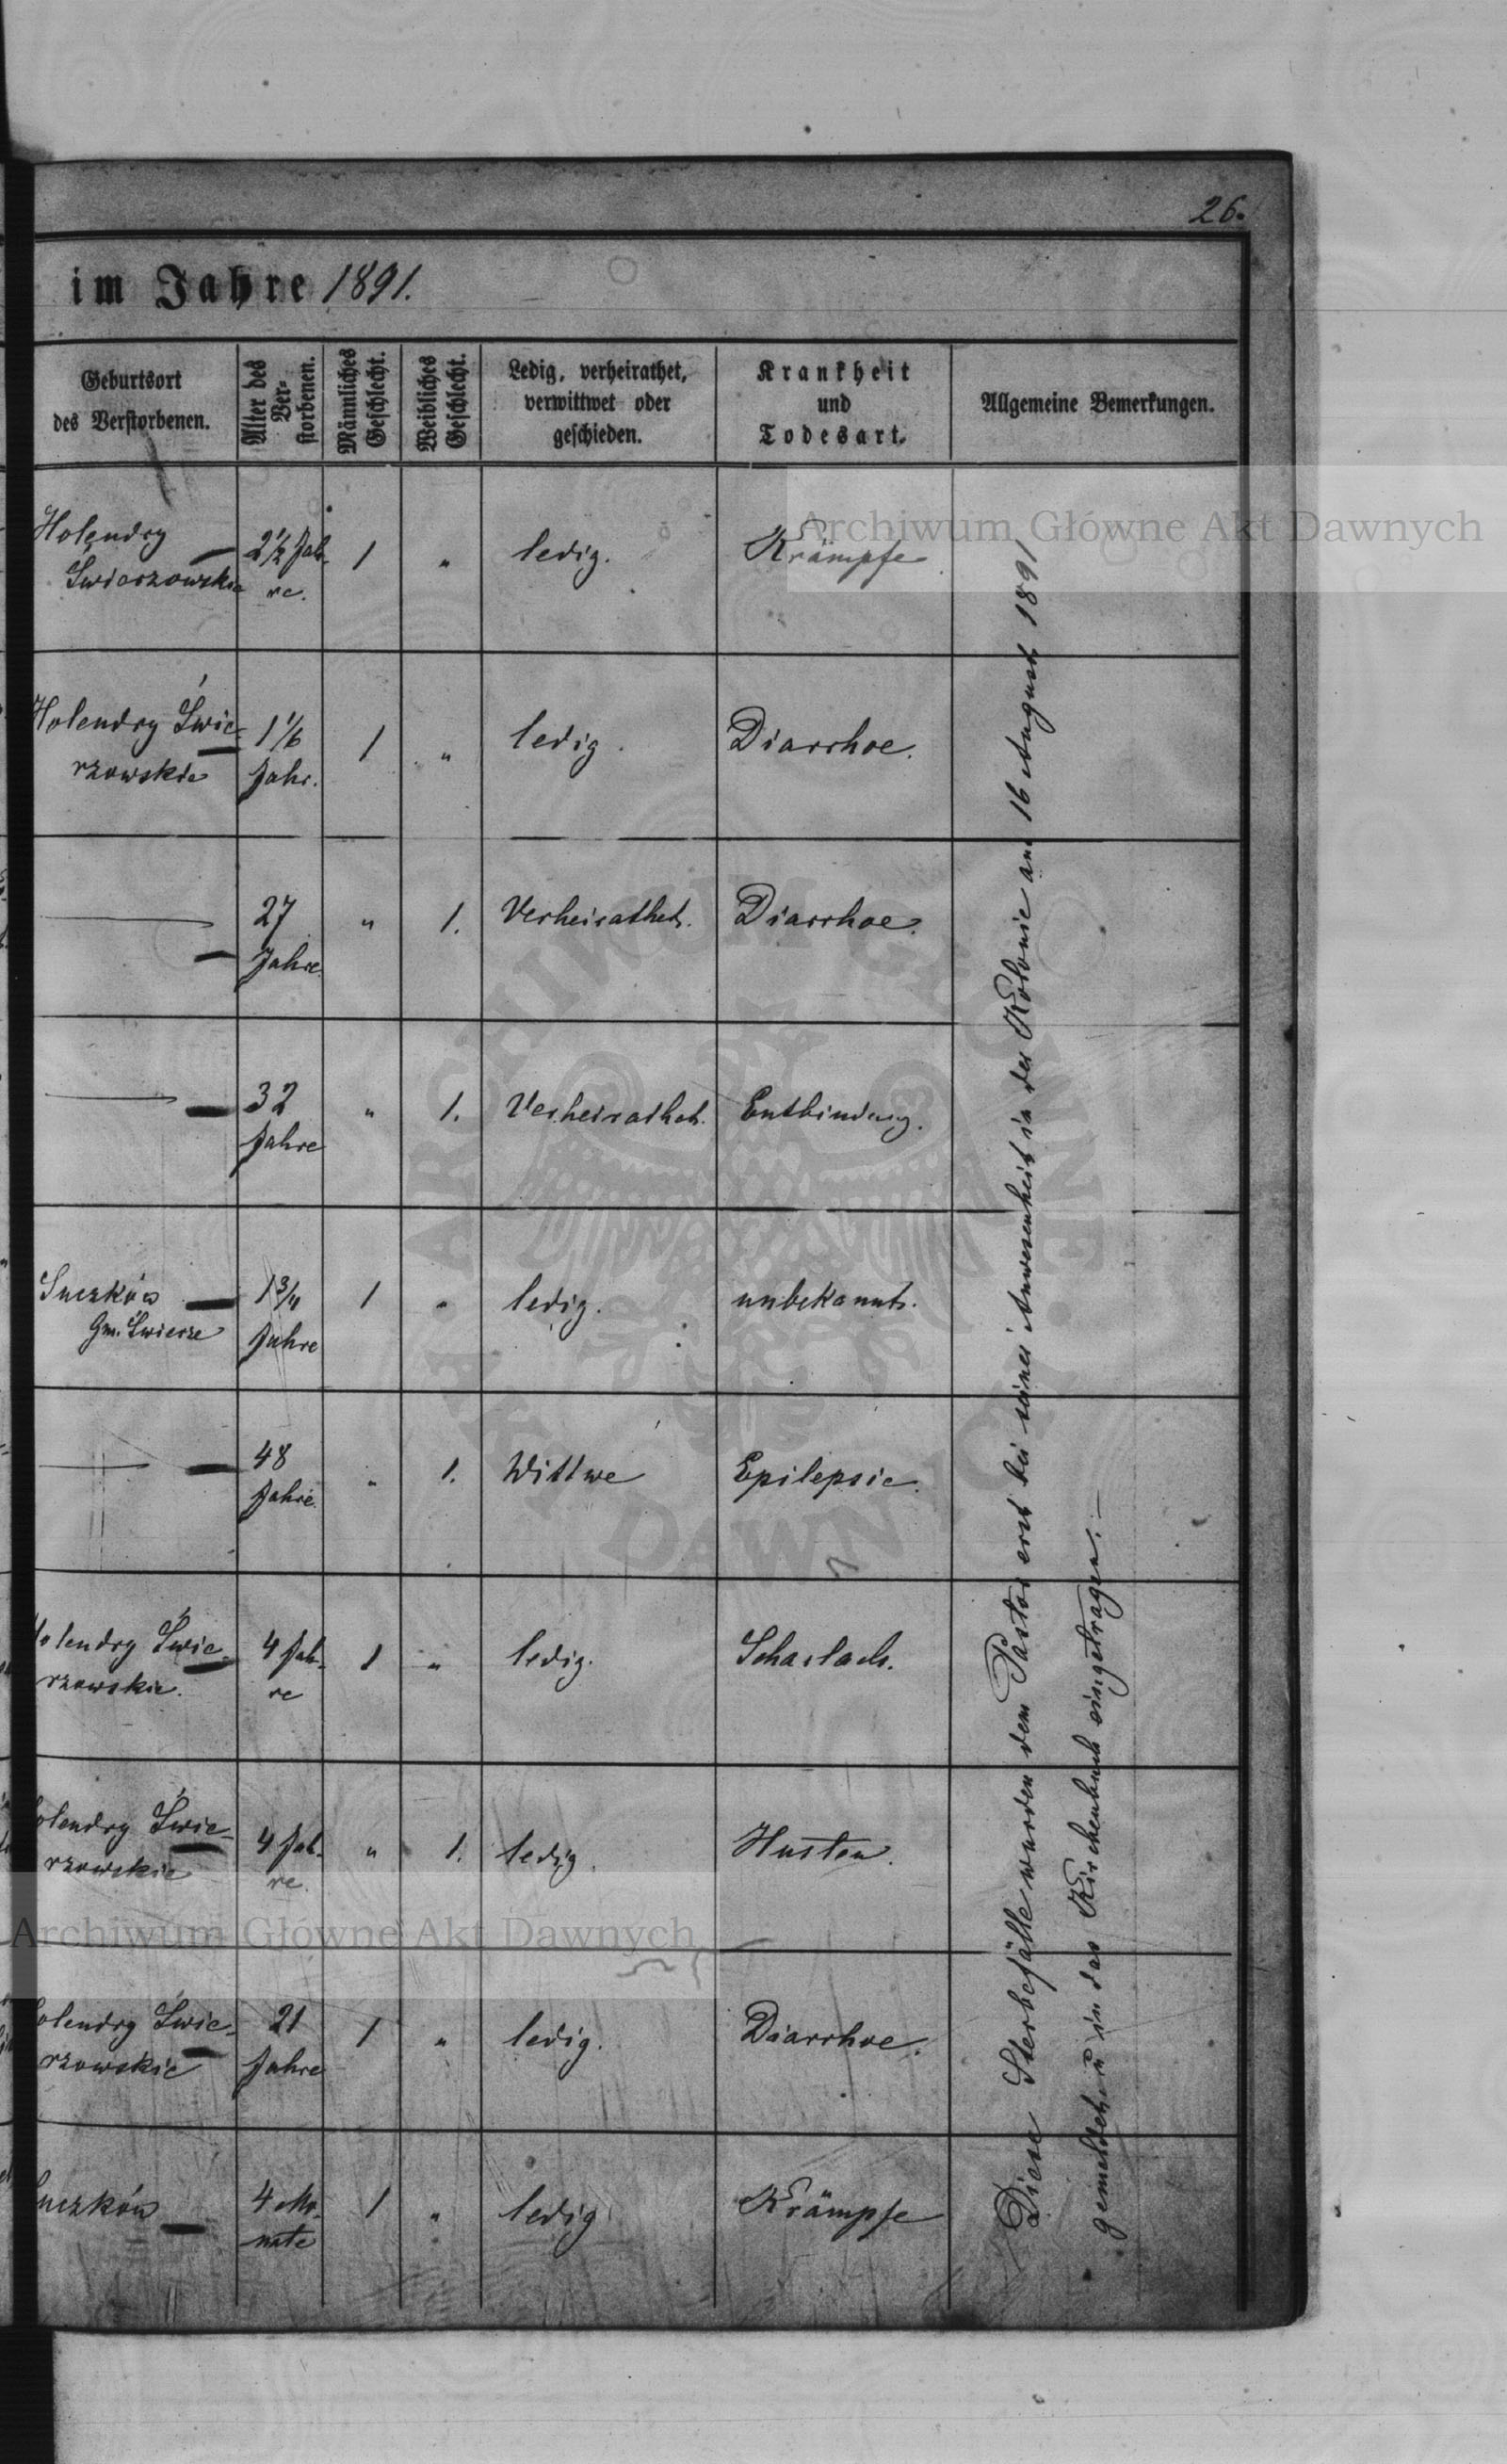 26.
im Jahre 1891.
Geburtsort
des Verstorbenen.
Alter des
Ver-
storbenen.
Männliches
Geschlecht.
Weibliches
Geschlecht.
Ledig, verheirathet,
verwittwet oder
geschieden.
Krankheit
und
Todesart.
Allgemeine Bemerkungen.
Holendry 2½ Jah- 1 " ledig. Krämpfe
Świerzowskie re.
Holendry Świe- 1 1/6 1 " ledig. Diarrhoe.
rzowskie Jahr.
— 27 " 1. Verheirathet. Diarrhoe.
Jahre.
— 32 " 1. Verheirathet. Entbindung.
Jahre
— 1 3/4 1 " ledig. unbekannt.
Gm. Świerze Jahre
— 48 " 1. Wittwe Epilepsie.
Jahre.
Holendry Świe- 4 Jah- 1 " ledig. Scharlach.
rzowskie. re
Holendry Świe- 4 Jah- " 1. ledig. Husten.
rzowskie re.
Holendry Świe- 21 1 " ledig. Diarrhoe.
rzowskie Jahre
4 Mo- 1 " ledig Krämpfe
nate
Diese Sterbefälle wurden dem Pastor erst bei seiner Anwesenheit in der Kolonie am 16 August 1891
gemeldet u in das Kirchenbuch eingetragen. —
Archiwum Główne Akt Dawnych
Archiwum Główne Akt Dawnych
ARCHIWUM GŁÓWNE · AKT DAWNYCH ·